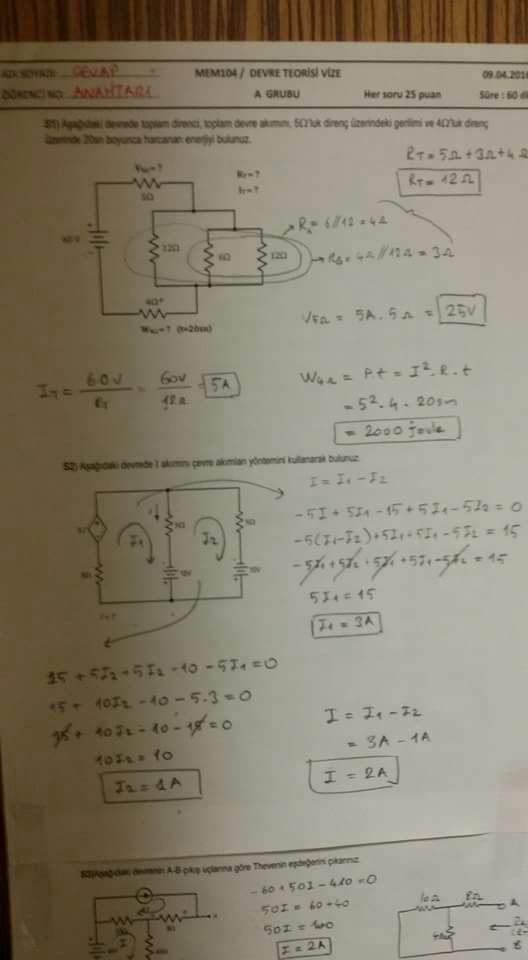 ADI SOYADI: CEVAP
MEM104 / DEVRE TEORİSİ VİZE
09.04.2016
ÖĞRENCİ NO: ANAHTARI
A GRUBU
Her soru 25 puan
Süre : 60 dk
S1) Aşağıdaki devrede toplam direnci, toplam devre akımını, 5Ω'luk direnç üzerindeki gerilimi ve 4Ω'luk direnç
üzerinde 20sn boyunca harcanan enerjiyi bulunuz.
RT = 5Ω + 3Ω + 4Ω
RT = 12Ω
5Ω
RT = ?
IT = ?
12Ω
6Ω
12Ω
RA = 6//12 = 4Ω
RB = 4Ω//12Ω = 3Ω
(t=20sn)
V5Ω = 5A . 5Ω = 25V
IT = 60V / RT = 60V / 12Ω = 5A
W4Ω = P.t = I².R.t
= 5². 4 . 20sn
= 2000 joule
S2) Aşağıdaki devrede I akımını çevre akımları yöntemini kullanarak bulunuz.
I = I1 - I2
5Ω
5Ω
I1
I2
10V
I = ?
-5I + 5I1 - 15 + 5I1 - 5I2 = 0
-5(I1-I2) + 5I1 + 5I1 - 5I2 = 15
-5I1 + 5I2 + 5I1 + 5I1 - 5I2 = 15
5I1 = 15
I1 = 3A
15 + 5I2 + 5I2 - 10 - 5I1 = 0
15 + 10I2 - 10 - 5.3 = 0
15 + 10I2 - 10 - 15 = 0
10I2 = 10
I2 = 1A
I = I1 - I2
= 3A - 1A
I = 2A
S3) Aşağıdaki devrenin A-B çıkış uçlarına göre Thevenin eşdeğerini çıkarınız.
-60 + 50I - 410 = 0
50I = 60 + 40
50I = 100
I = 2A
10Ω
8Ω
A
B